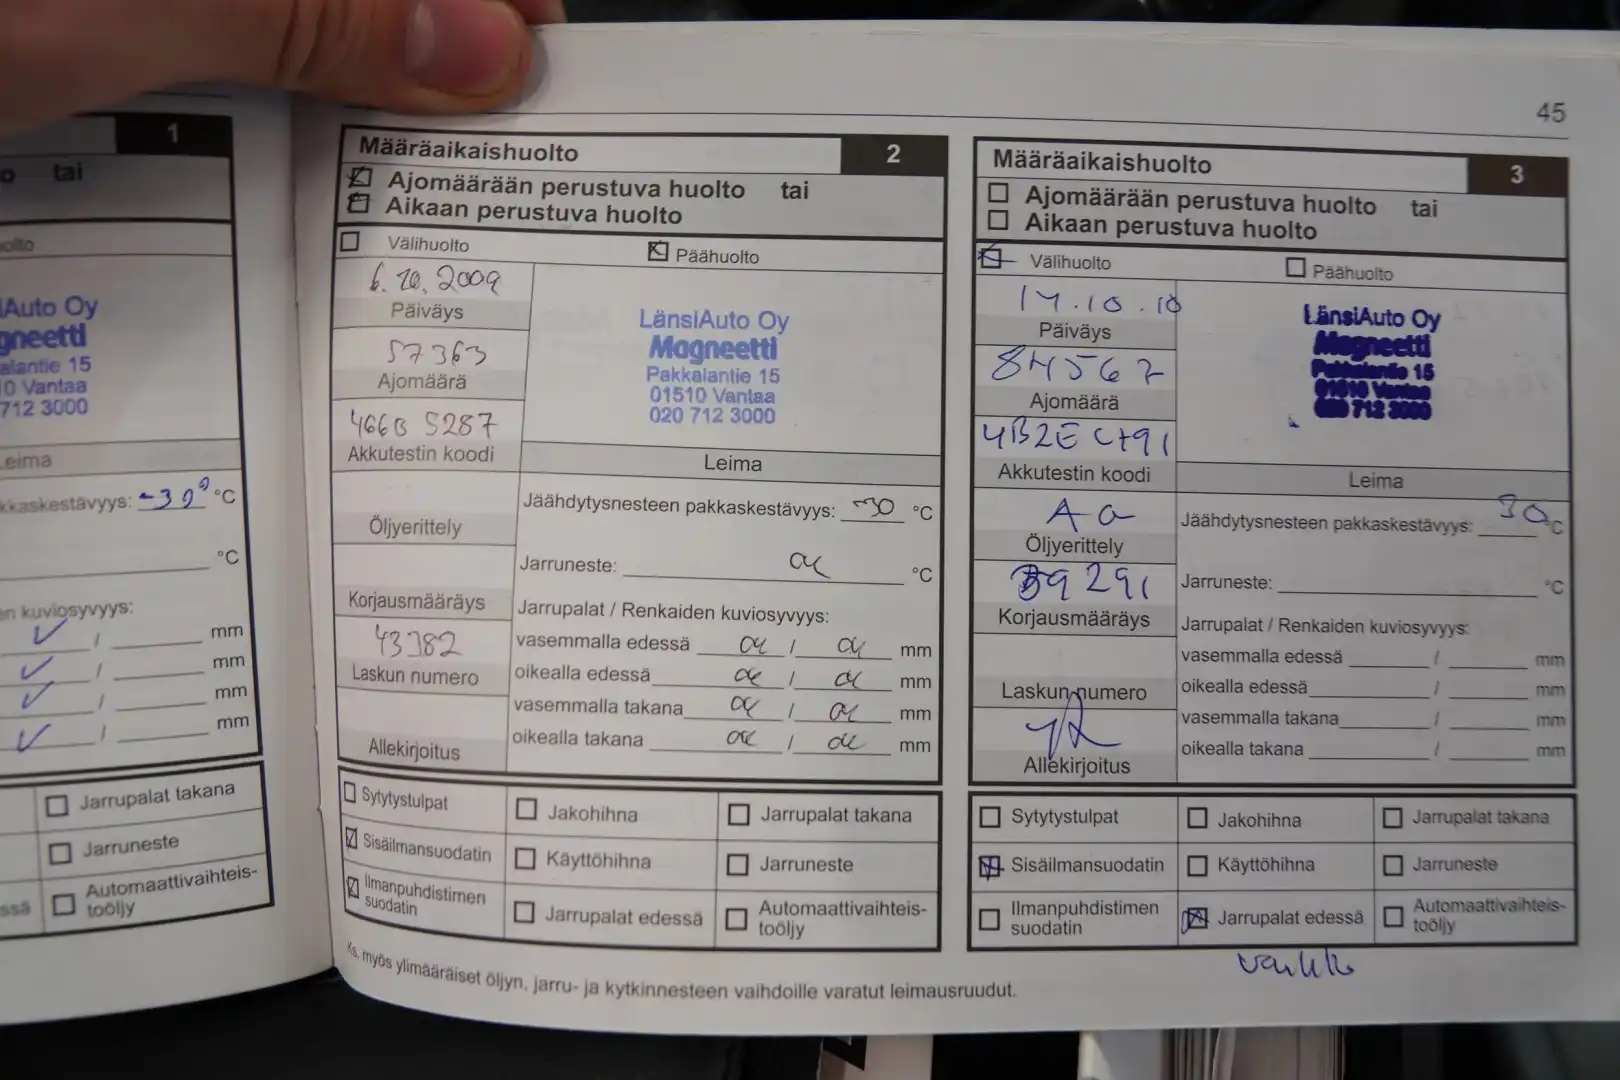 45
1
o tai
olto
iAuto Oy
gneetti
alantie 15
0 Vantaa
712 3000
Leima
kkaskestävyys: -30° °C
°C
en kuviosyvyys:
✓ / mm
✓ / mm
✓ / mm
✓ / mm
Jarrupalat takana
Jarruneste
ssä
Automaattivaihteis-
toöljy
Määräaikaishuolto 2
Ajomäärään perustuva huolto tai
Aikaan perustuva huolto
Välihuolto Päähuolto
6.10.2009
Päiväys
57363
Ajomäärä
466B S287
Akkutestin koodi
Öljyerittely
Korjausmääräys
43382
Laskun numero
Allekirjoitus
LänsiAuto Oy
Magneetti
Pakkalantie 15
01510 Vantaa
020 712 3000
Leima
Jäähdytysnesteen pakkaskestävyys: -30 °C
Jarruneste: ok °C
Jarrupalat / Renkaiden kuviosyvyys:
vasemmalla edessä ok / ok mm
oikealla edessä ok / ok mm
vasemmalla takana ok / ok mm
oikealla takana ok / ok mm
Sytytystulpat Jakohihna Jarrupalat takana
Sisäilmansuodatin Käyttöhihna Jarruneste
Ilmanpuhdistimen
suodatin
Jarrupalat edessä
Automaattivaihteis-
toöljy
Ks. myös ylimääräiset öljyn, jarru- ja kytkinnesteen vaihdoille varatut leimausruudut.
Määräaikaishuolto 3
Ajomäärään perustuva huolto tai
Aikaan perustuva huolto
Välihuolto Päähuolto
14.10.10
Päiväys
84567
Ajomäärä
4B2E CH91
Akkutestin koodi
Öljyerittely
39291
Korjausmääräys
Laskun numero
Allekirjoitus
LänsiAuto Oy
Magneetti
Pakkalantie 15
01510 Vantaa
020 712 3000
Leima
Jäähdytysnesteen pakkaskestävyys: 30 °C
Jarruneste: °C
Jarrupalat / Renkaiden kuviosyvyys:
vasemmalla edessä / mm
oikealla edessä / mm
vasemmalla takana / mm
oikealla takana / mm
Sytytystulpat Jakohihna Jarrupalat takana
Sisäilmansuodatin Käyttöhihna Jarruneste
Ilmanpuhdistimen
suodatin
Jarrupalat edessä
Automaattivaihteis-
toöljy